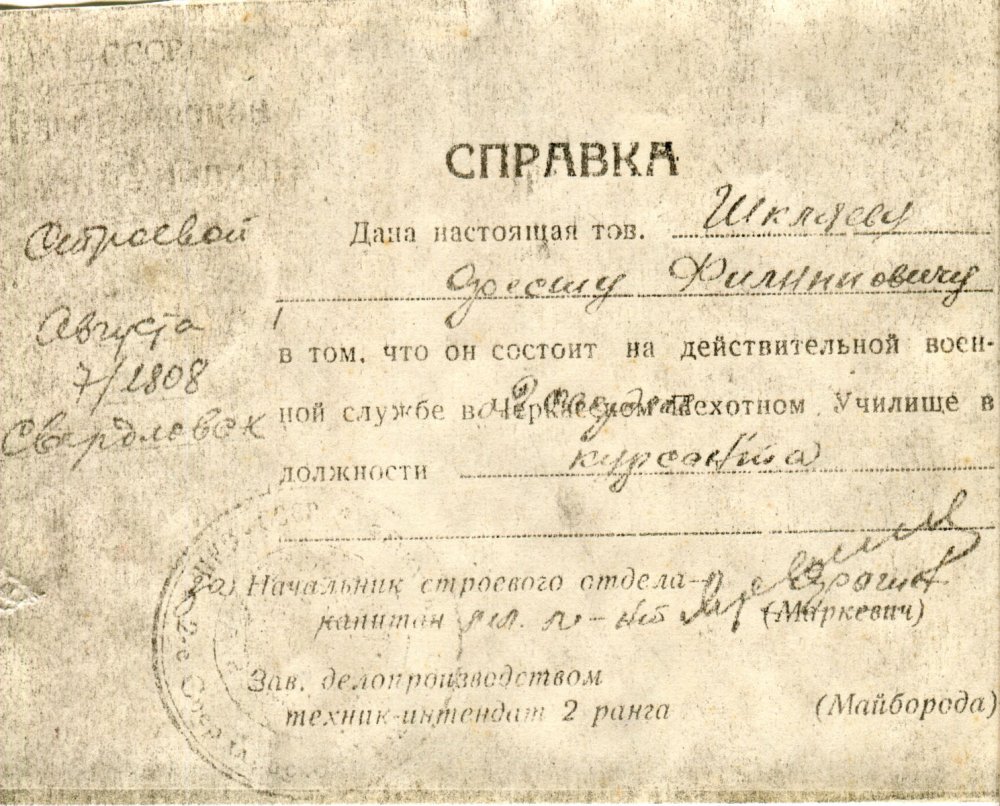 СССР
Строевой
Августа
7/1808
Свердловск
СПРАВКА
Дана настоящая тов. Шкляеву
Филипповичу
в том, что он состоит на действительной воен-
ной службе в Черкасском Пехотном Училище в
должности курсанта
за) Начальник строевого отдела
капитан (Маркевич)
Зав. делопроизводством
техник-интендант 2 ранга (Майборода)